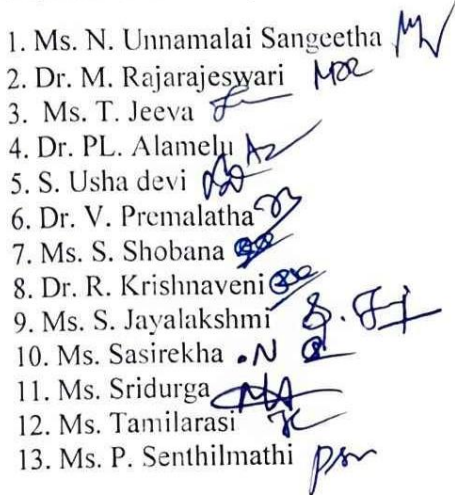 1. Ms. N. Unnamalai Sangeetha
2. Dr. M. Rajarajeswari
3. Ms. T. Jeeva
4. Dr. PL. Alamelu
5. S. Usha devi
6. Dr. V. Premalatha
7. Ms. S. Shobana
8. Dr. R. Krishnaveni
9. Ms. S. Jayalakshmi
10. Ms. Sasirekha .N
11. Ms. Sridurga
12. Ms. Tamilarasi
13. Ms. P. Senthilmathi